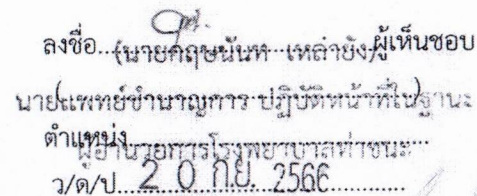 ลงชื่อ...(นายกฤษนันท เหล่ายัง)ผู้เห็นชอบ
นายแพทย์ชำนาญการ ปฏิบัติหน้าที่ในฐานะ
ตำแหน่ง
ผู้อำนวยการโรงพยาบาลท่าชนะ
ว/ด/ป...20 ก.ย. 2566